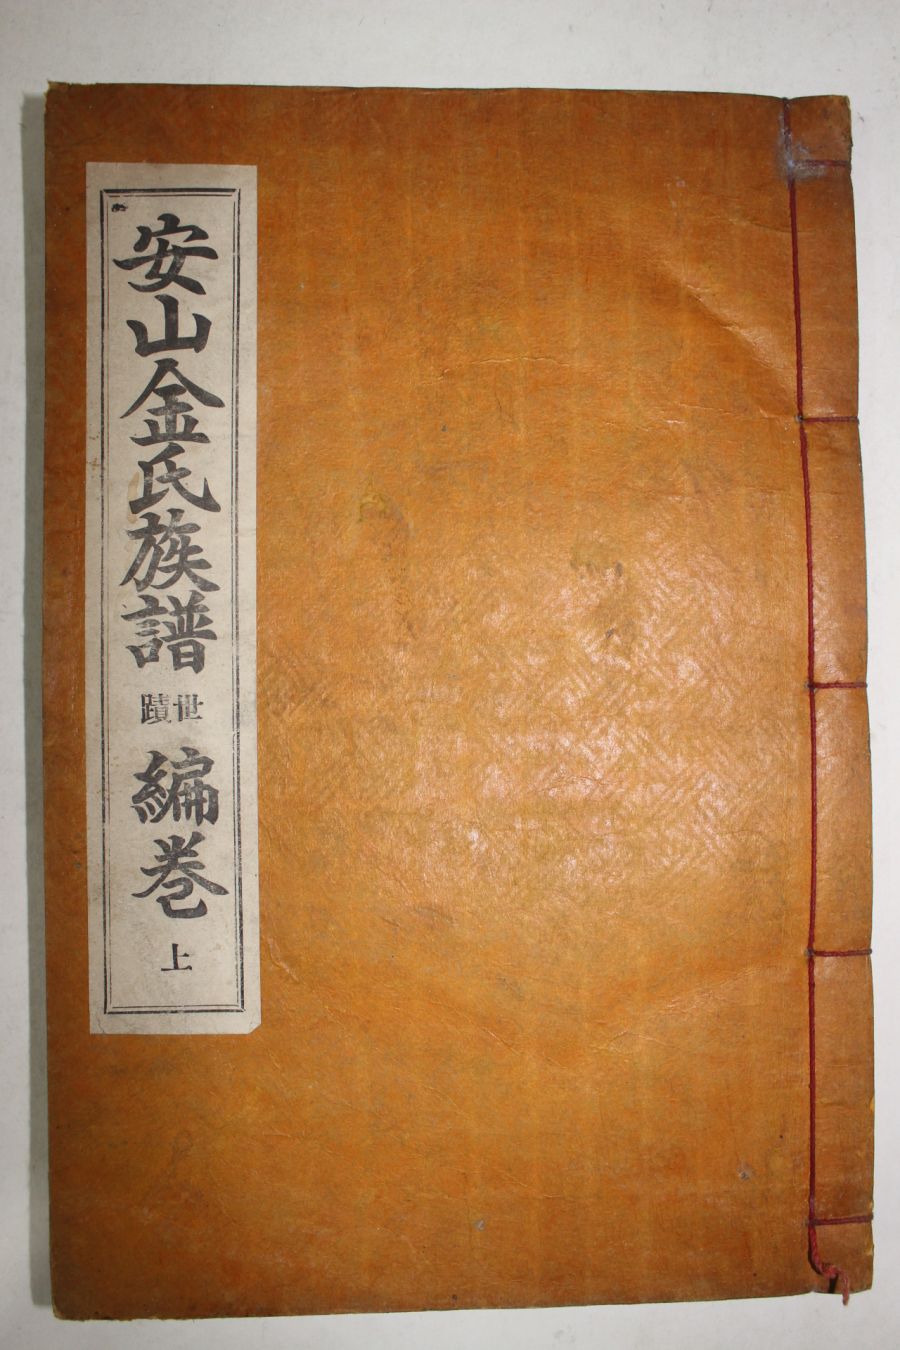 安山金氏族譜世蹟編卷上